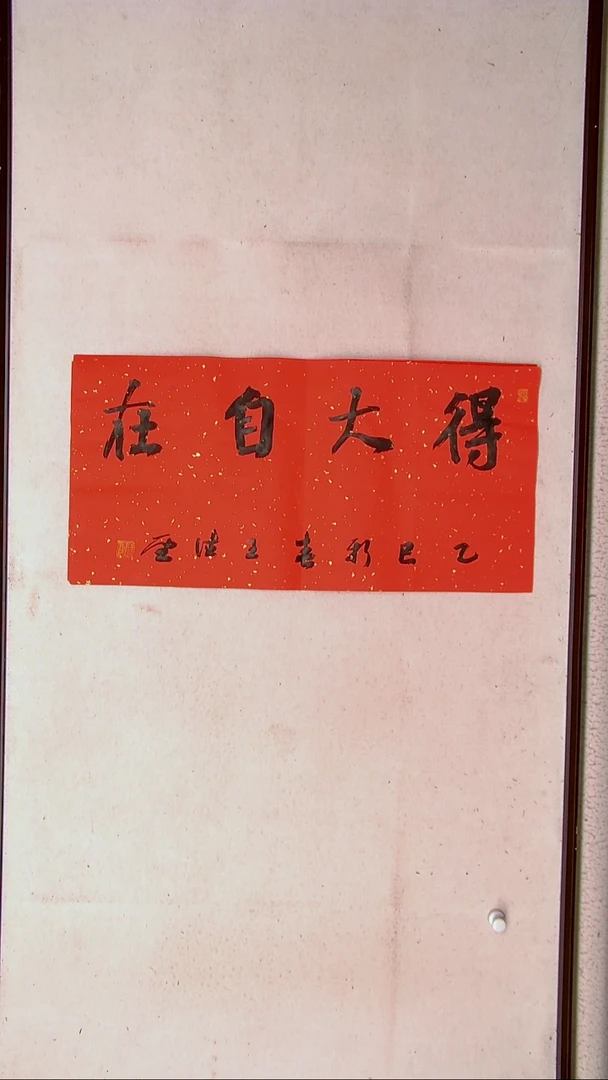 得大自在
乙巳新春王德